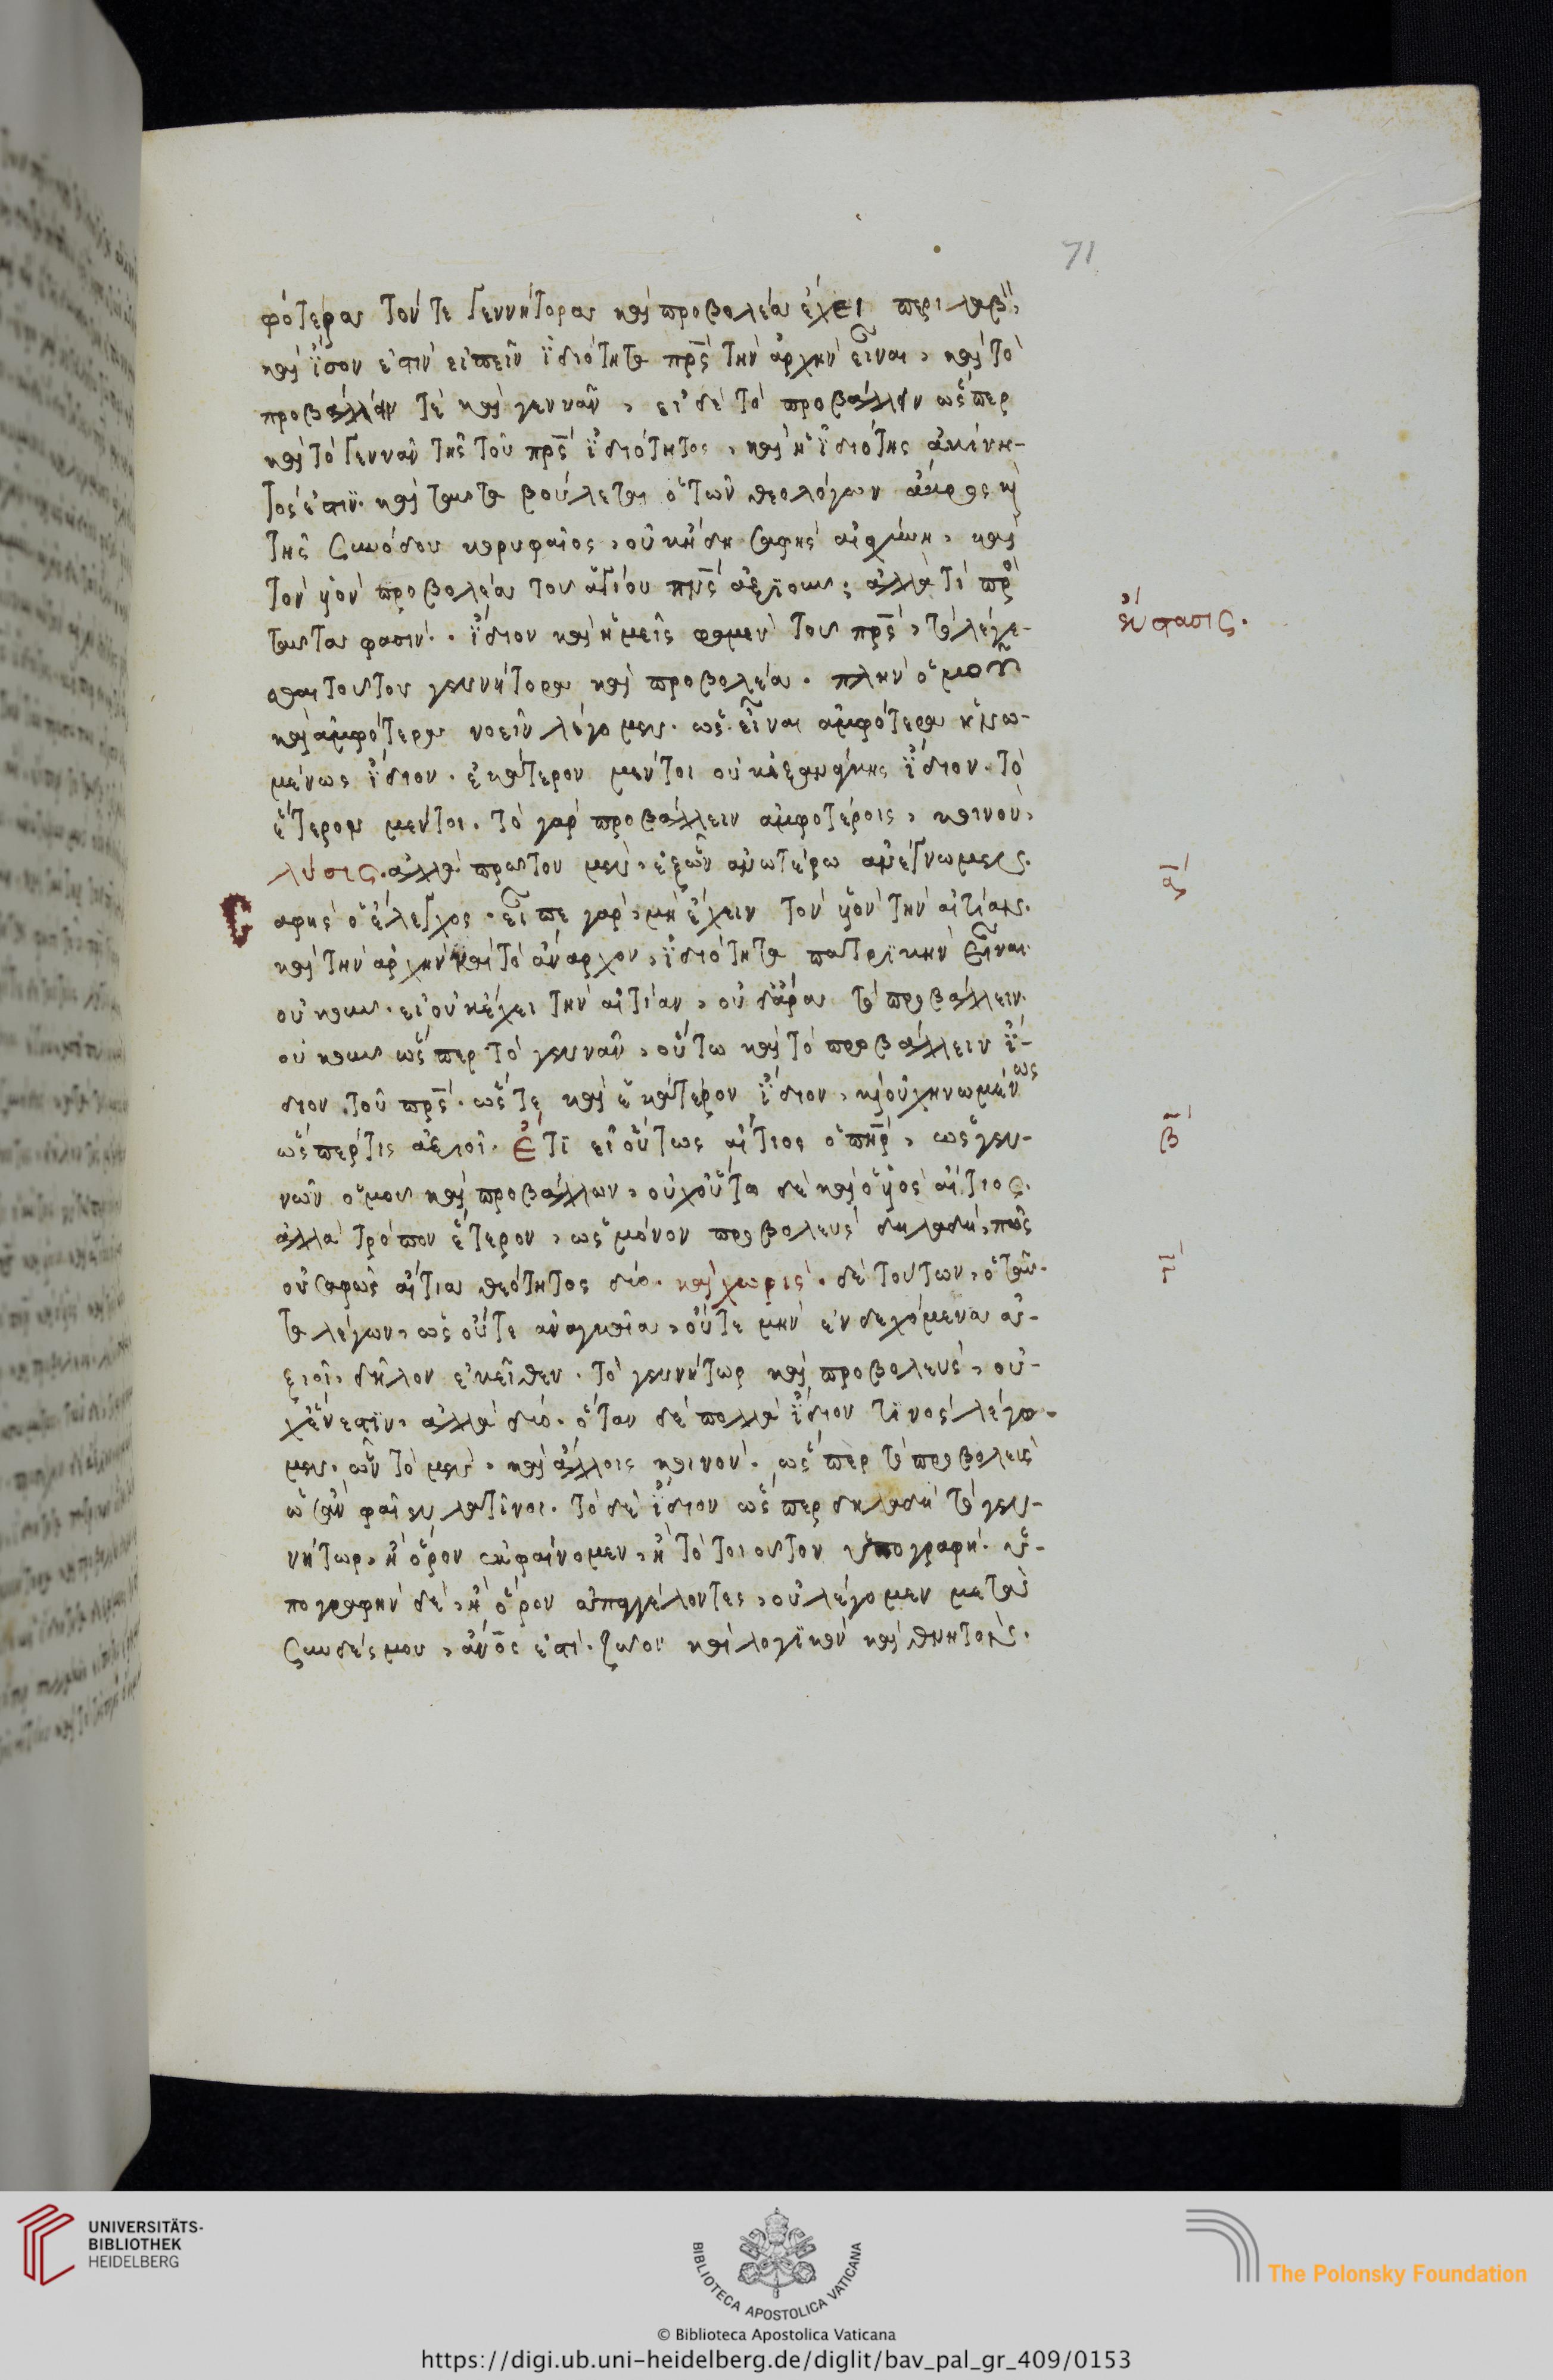 71
φότερα τόν τε γεννήτορα καὶ προβολέα ἔχει περι
καὶ ἴσον ἐστὶν εἰπεῖν ἰδιότητα πρς τὴν ἀρχὴν εἶναι, καὶ τὸ
προβάλλειν τὲ καὶ γεννᾶν, εἰ δὲ τὸ προβάλλειν ὥσπερ
καὶ τὸ γεννᾶν τῆς τοῦ πρς ἰδιότητος, καὶ ἡ ἰδιότης ἀκίνη-
τός ἐστιν. καὶ ταῦτα βούλεται ὁ τῶν θεολόγων ἄκρος κ
τῆς συνόδου κορυφαῖος, οὐκ ἤδη σαφὴς αἰσχύνη, καὶ
τὸν υἱὸν προβολέα τοῦ ἁγίου πνς ἀξιοῦν; ἀλλὰ τί πρὸ
ταῦτα φασίν. ἴδιον καὶ ἡμεῖς φαμὲν τοῦ πρς, τὸ λέγε-
σθαι τοῦτον γεννήτορα καὶ προβολέα. πλὴν ὁμοῦ
καὶ ἀμφότερα νοεῖν λέγομεν. ὡς εἶναι ἀμφότερα ἡνω-
μένως ἴδιον. ἑκάτερον μέντοι οὐκ ἐξανάγκης ἴδιον. τὸ
ἕτερον μέντοι. τὸ γὰρ προβάλλειν ἀμφοτέροις, κοινόν,
λύσις. ἀλλὰ πρῶτον μὲν, ἐξ ὧν ἀνωτέρω ἀνέγνωμεν σ
αφὴς ὁ ἔλεγχος. εἶπε γὰρ, μὴ ἔχειν τὸν υἱὸν τὴν αἰτίαν.
καὶ τὴν ἀρχὴν καὶ τὸ ἄναρχον, ἰδιότητα πατρικὴν εἶναι.
οὐκοῦν. εἰ οὐκ ἔχει τὴν αἰτίαν, οὐδάρα τὸ προβάλλειν.
οὐκοῦν ὥσπερ τὸ γεννᾶν, οὕτω καὶ τὸ προβάλλειν ἴ-
διον τοῦ πρς. ὥστε καὶ ἑκάτερον ἴδιον, κ οὐχ ἡνωμένως
ὥσπέρ τις ἀξιοῖ. Ἔτι εἰ οὕτως αἴτιος ὁ πηρ, ὡς γεν-
νῶν ὁμοῦ καὶ προβάλλων, οὐχ οὕτω δὲ καὶ ὁ υἱὸς αἴτιος.
ἀλλὰ τρόπον ἕτερον, ὡς μόνον προβολεὺς δηλαδή, πῶς
οὐ σαφῶς αἴτια θεότητος δύο. καὶ χωρὶς. δὲ τούτων, ὁ ταῦ-
τα λέγων, ὡς οὔτε ἀναγκαῖα, οὔτε μὴν ἐνδεχόμενα ἀ-
ξιοῖ, δῆλον ἐκεῖθεν. τὸ γεννήτωρ καὶ προβολεὺς, οὐ-
χ ἕν ἐστιν, ἀλλὰ δύο. ὅταν δὲ πολλὰ ἴδιον τινὸς λέγο-
μεν. ὧν τὸ μὲν. καὶ ἄλλοις κοινὸν. ὥσπερ τὸ προβολεὺς
ὡς ἂν φαῖεν λατῖνοι. τὸ δὲ ἴδιον ὥσπερ δηλαδὴ τὸ γεν-
νήτωρ, ἢ ὅρον ἐκφαίνομεν, ἢ τὸ τοιοῦτον ὑπογραφή. ὑ-
πογραφὴν δὲ, ἢ ὅρον ἀπαγγέλοντες, οὐ λέγομεν μετὰ
συνδέσμου, ἀνος ἐστὶ. ζῶον καὶ λογικὸν καὶ θνητόν.
ἔνστασις.
α
β
γ
UNIVERSITÄTS-
BIBLIOTHEK
HEIDELBERG
BIBLIOTECA APOSTOLICA VATICANA
The Polonsky Foundation
© Biblioteca Apostolica Vaticana
https://digi.ub.uni-heidelberg.de/diglit/bav_pal_gr_409/0153